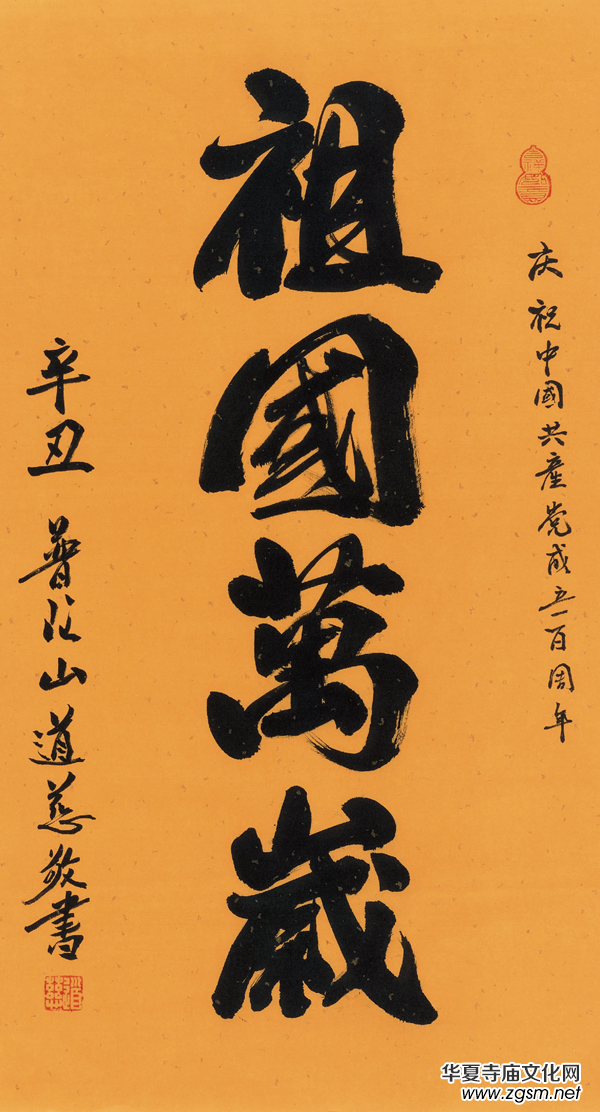 庆祝中國共產党成立一百周年
祖國萬歲
辛丑 普陀山道慈敬書
华夏寺庙文化网
www.zgsm.net